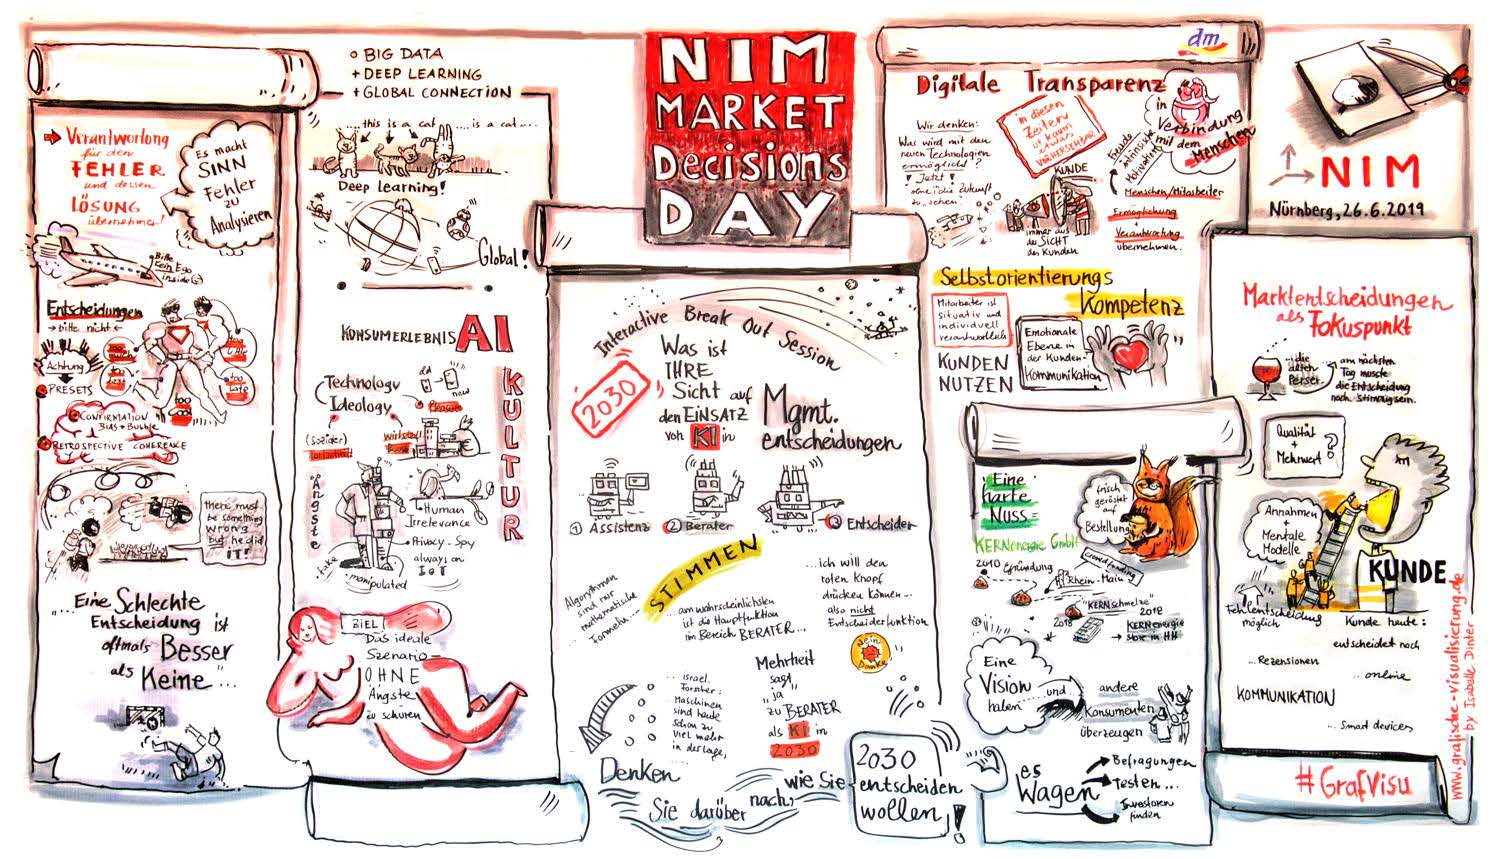 NIM
MARKET
Decisions
DAY
NIM
Nürnberg, 26.6.2019
BIG DATA
+ DEEP LEARNING
+ GLOBAL CONNECTION
Verantwortung
für den
FEHLER
und dessen
LÖSUNG
übernehmen!
Es macht
SINN
Fehler
zu
Analysieren
Bitte
kein Ego
inside
Entscheidungen
→ bitte nicht ←
too
much
too
late
too
cool
Achtung
PRESETS
CONFIRMATION
BIAS + Bubble
RETROSPECTIVE COHERENCE
there must
be something
wrong
but he did
IT!
"... Eine Schlechte
Entscheidung ist
oftmals Besser
als Keine"...
....this is a cat ......is a cat...
Deep learning!
Global!
KONSUMERLEBNIS AI
KULTUR
Technology
Ideology
old
new
Pleasure
(sozialer)
Ängste
Human
Irrelevance
Privacy-Spy
always on
IoT
fake
manipulated
ZIEL
Das ideale
Szenario
OHNE
Ängste
zu schüren
Interactive Break Out Session
2030
Was ist
IHRE
Sicht auf
den EINSATZ
von KI in
Mgmt.
entscheidungen
1 Assistenz
2 Berater
3 Entscheider
STIMMEN
Algorythmen
sind nur
mathematische
Formeln...
...am wahrscheinlichsten
ist die Hauptfunktion
im Bereich BERATER...
...ich will den
roten Knopf
drücken können...
also nicht
Entscheiderfunktion
Nein
Danke
...israel.
Forscher:
Maschinen
sind heute
schon zu
viel mehr
in der Lage,
...
Mehrheit
sagt
"ja"
zu BERATER
als KI in
2030
Denken
Sie darüber nach,
wie Sie
2030
entscheiden
wollen!
dm
Digitale Transparenz
Wir denken:
Was wird mit den
neuen Technologien
ermöglicht?
! Jetzt !
ohne in die Zukunft
zu "sehen"
in diesen
Zeiten
ist kaum
etwas
VORHERSEHBAR
KUNDE
immer aus
der SICHT
des Kunden
in
Verbindung
mit dem
Menschen
Freude
intrinsische
Motivation
Menschen/Mitarbeiter
Ermöglichung
+
Verantwortung
übernehmen.
Selbstorientierungs
Kompetenz
Mitarbeiter ist
situativ und
individuell
verantwortlich
KUNDEN
NUTZEN
Emotionale
Ebene in
der Kunden-
Kommunikation
Eine
harte
Nuss
KERNenergie GmbH
frisch
geröstet
auf
Bestellung
2010 Gründung
Crowdfunding
Rhein-Main
"KERNschmelze"
2018
2018
KERNenergie
store in HH
Eine
Vision
haben
...und...
andere
Konsumenten
überzeugen
es
Wagen
Befragungen
Testen...
Investoren
finden
Marktentscheidungen
als Fokuspunkt
...die
alten
Perser.
am nächsten
Tag musste
die Entscheidung
noch stimmig sein.
Qualität
+
Mehrwert
?
Annahmen
+
Mentale
Modelle
KUNDE
Fehlentscheidung
möglich
Kunde heute:
entscheidet noch
...Rezensionen
...online
KOMMUNIKATION
...smart devices
#GrafVisu
www.grafische-visualisierung.de
by Isabelle Dinter